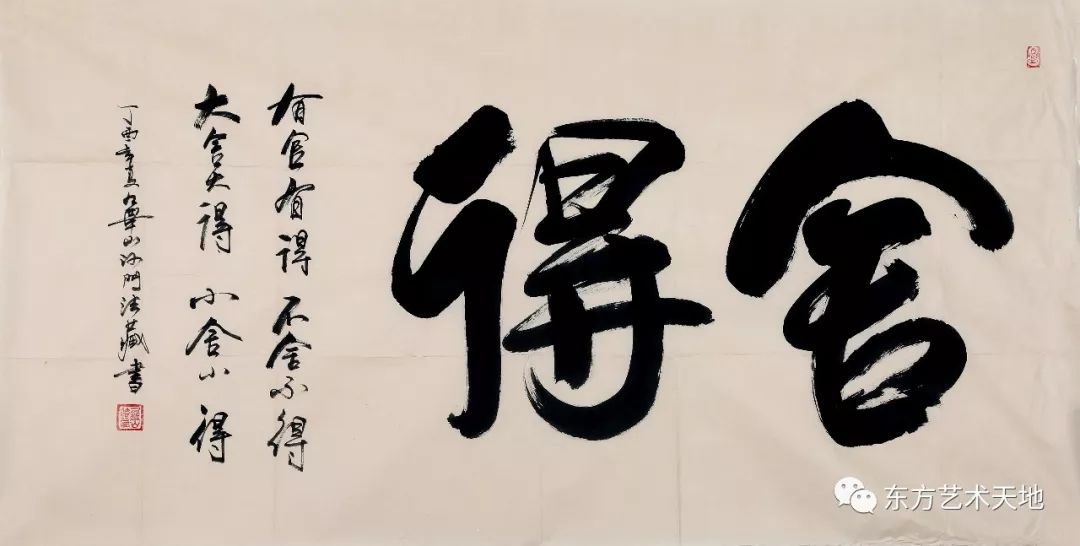 舍得
有舍有得 不舍不得
大舍大得 小舍小得
丁酉年夏九华山沙門法藏书
东方艺术天地